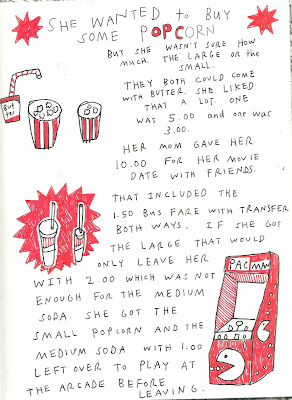 SHE WANTED to BUY
SOME POPCORN
BUT SHE WASN'T SURE HOW
MUCH. THE LARGE OR the
SMALL.
THEY BOTH COULD COME
WITH BUTTER. SHE LIKED
THAT A LOT. ONE
WAS 5.00 and one was
3.00.
But
ter
HER MOM GAVE HER
10.00 FOR HER MOVIE
DATE WITH FRIENDS.
THAT INCLUDED THE
1.50 BUS FARE WITH TRANSFER
BOTH WAYS. IF SHE GOT
THE LARGE THAT WOULD
ONLY LEAVE HER
WITH 2.00 WHICH WAS NOT
ENOUGH FOR THE MEDIUM
SODA. SHE GOT THE
SMALL POPCORN AND THE
MEDIUM SODA WITH 1.00
LEFT OVER TO PLAY AT
THE ARCADE BEFORE
LEAVING.
PACMAN